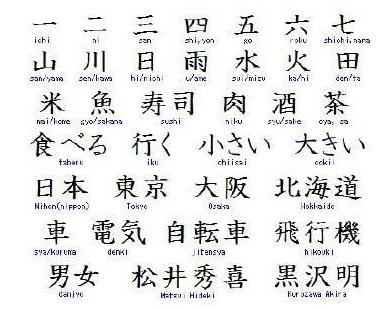 一 二 三 四 五 六 七
ichi ni san shi,yon go roku shichi,nana
山 川 日 雨 水 火 田
san/yama sen/kawa hi/nichi u/ame sui/mizu ka/hi den/ta
米 魚 寿司 肉 酒 茶
mai/kome gyo/sakana sushi niku syu/sake oya, sa
食べる 行く 小さい 大きい
taberu iku chiisai ookii
日本 東京 大阪 北海道
Nihon(nippon) Tokyo Osaka Hokkaido
車 電気 自転車 飛行機
sya/kuruma denki jitensya hikouki
男女 松井秀喜 黒沢明
danjyo Matsui Hideki Kurozawa Akira